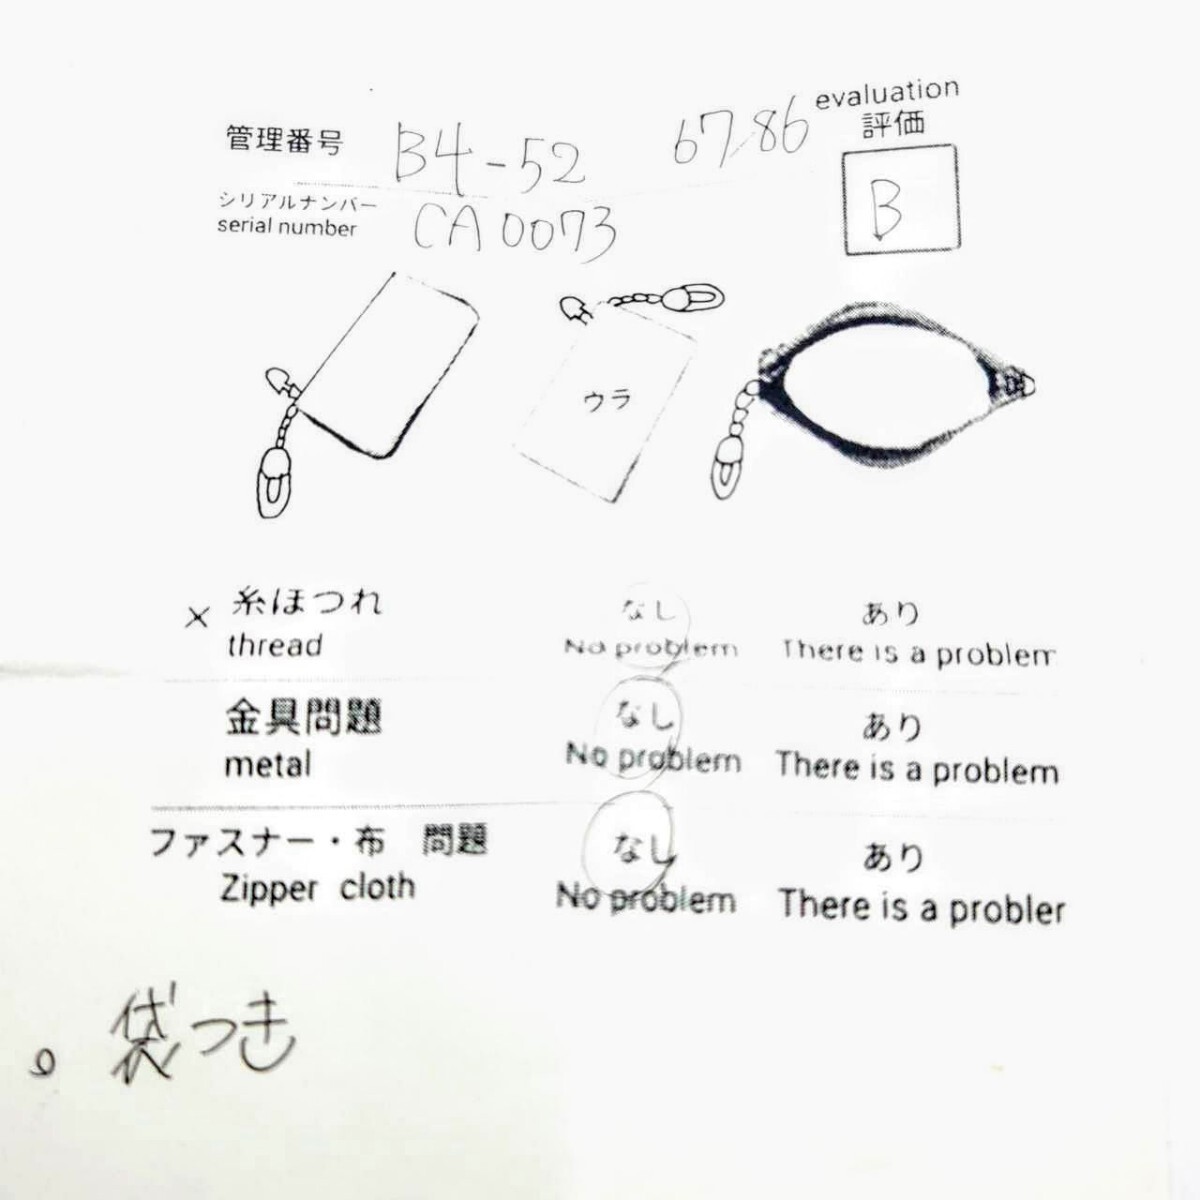 evaluation
管理番号 B4-52 67,86 評価
シリアルナンバー
serial number CA0073 B
ウラ
× 糸ほつれ なし あり
thread No problem There is a problem
金具問題 なし あり
metal No problem There is a problem
ファスナー・布 問題 なし あり
Zipper cloth No problem There is a probler
。袋つき